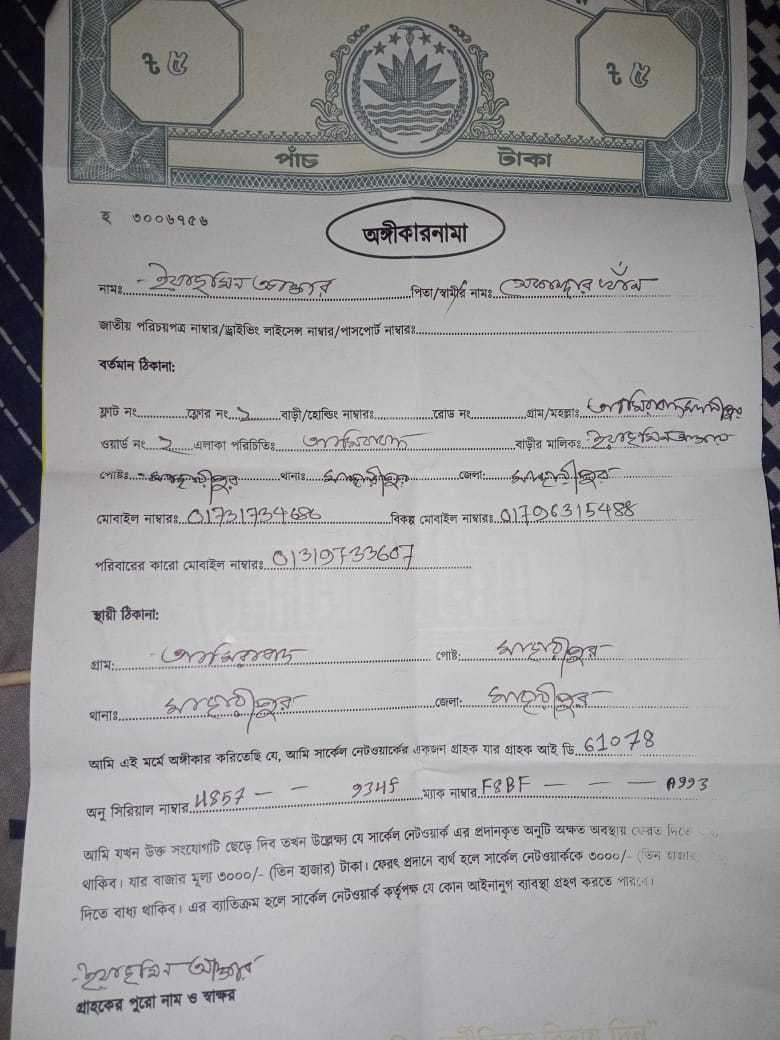 ৳ ৫ ৳ ৫
পাঁচ টাকা
হ ৩০০৬৭৫৬
অঙ্গীকারনামা
নামঃ ইয়াছমিন আক্তার পিতা/স্বামীর নামঃ খাঁন
জাতীয় পরিচয়পত্র নাম্বার/ড্রাইভিং লাইসেন্স নাম্বার/পাসপোর্ট নাম্বারঃ
বর্তমান ঠিকানা:
ফ্লাট নং ফ্লোর নং ১ বাড়ী/হোল্ডিং নাম্বারঃ রোড নং গ্রাম/মহল্লাঃ
ওয়ার্ড নং ২ এলাকা পরিচিতিঃ আমিরাবাদ বাড়ীর মালিকঃ ইয়াছমিন আক্তার
পোষ্টঃ মাদারীপুর থানাঃ মাদারীপুর জেলা: মাদারীপুর
মোবাইল নাম্বারঃ 01731734686 বিকল্প মোবাইল নাম্বারঃ 01796315488
পরিবারের কারো মোবাইল নাম্বারঃ 01319733607
স্থায়ী ঠিকানা:
গ্রাম: আমিরাবাদ পোষ্ট: মাদারীপুর
থানাঃ মাদারীপুর জেলা: মাদারীপুর
আমি এই মর্মে অঙ্গীকার করিতেছি যে, আমি সার্কেল নেটওয়ার্কের একজন গ্রাহক যার গ্রাহক আই ডি 61078
অনু সিরিয়াল নাম্বার 4857 - - 9345 ম্যাক নাম্বার F8BF - - - A993
আমি যখন উক্ত সংযোগটি ছেড়ে দিব তখন উল্লেক্ষ্য যে সার্কেল নেটওয়ার্ক এর প্রদানকৃত অনুটি অক্ষত অবস্থায় ফেরত দিতে
থাকিব। যার বাজার মূল্য ৩০০০/- (তিন হাজার) টাকা। ফেরৎ প্রদানে ব্যর্থ হলে সার্কেল নেটওয়ার্ককে ৩০০০/- (তিন হাজার
দিতে বাধ্য থাকিব। এর ব্যতিক্রম হলে সার্কেল নেটওয়ার্ক কর্তৃপক্ষ যে কোন আইনানুগ ব্যবস্থা গ্রহণ করতে পারবে।
ইয়াছমিন আক্তার
গ্রাহকের পুরো নাম ও স্বাক্ষর